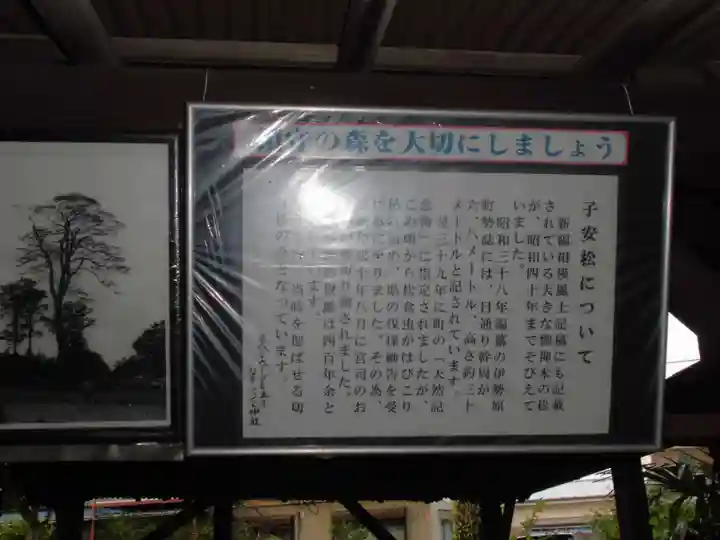 の森を大切にしましょう
子安松について
新編相模風土記稿にも記載
されている大きな御神木の松
が、昭和四十年までそびえて
いました。
昭和三十八年編纂の伊勢原
町勢誌には、目通り幹周が
六、八メートル、高さ約三十
メートルと記されています。
三十九年に町の「天然記
念物」に指定されましたが、
この頃から松食虫がはびこり
の伐採
なりました。その為、
年八月に宮司のお
り倒されました。
は四百年余と
ます。
当時を偲ばせる切
となっています。
神社